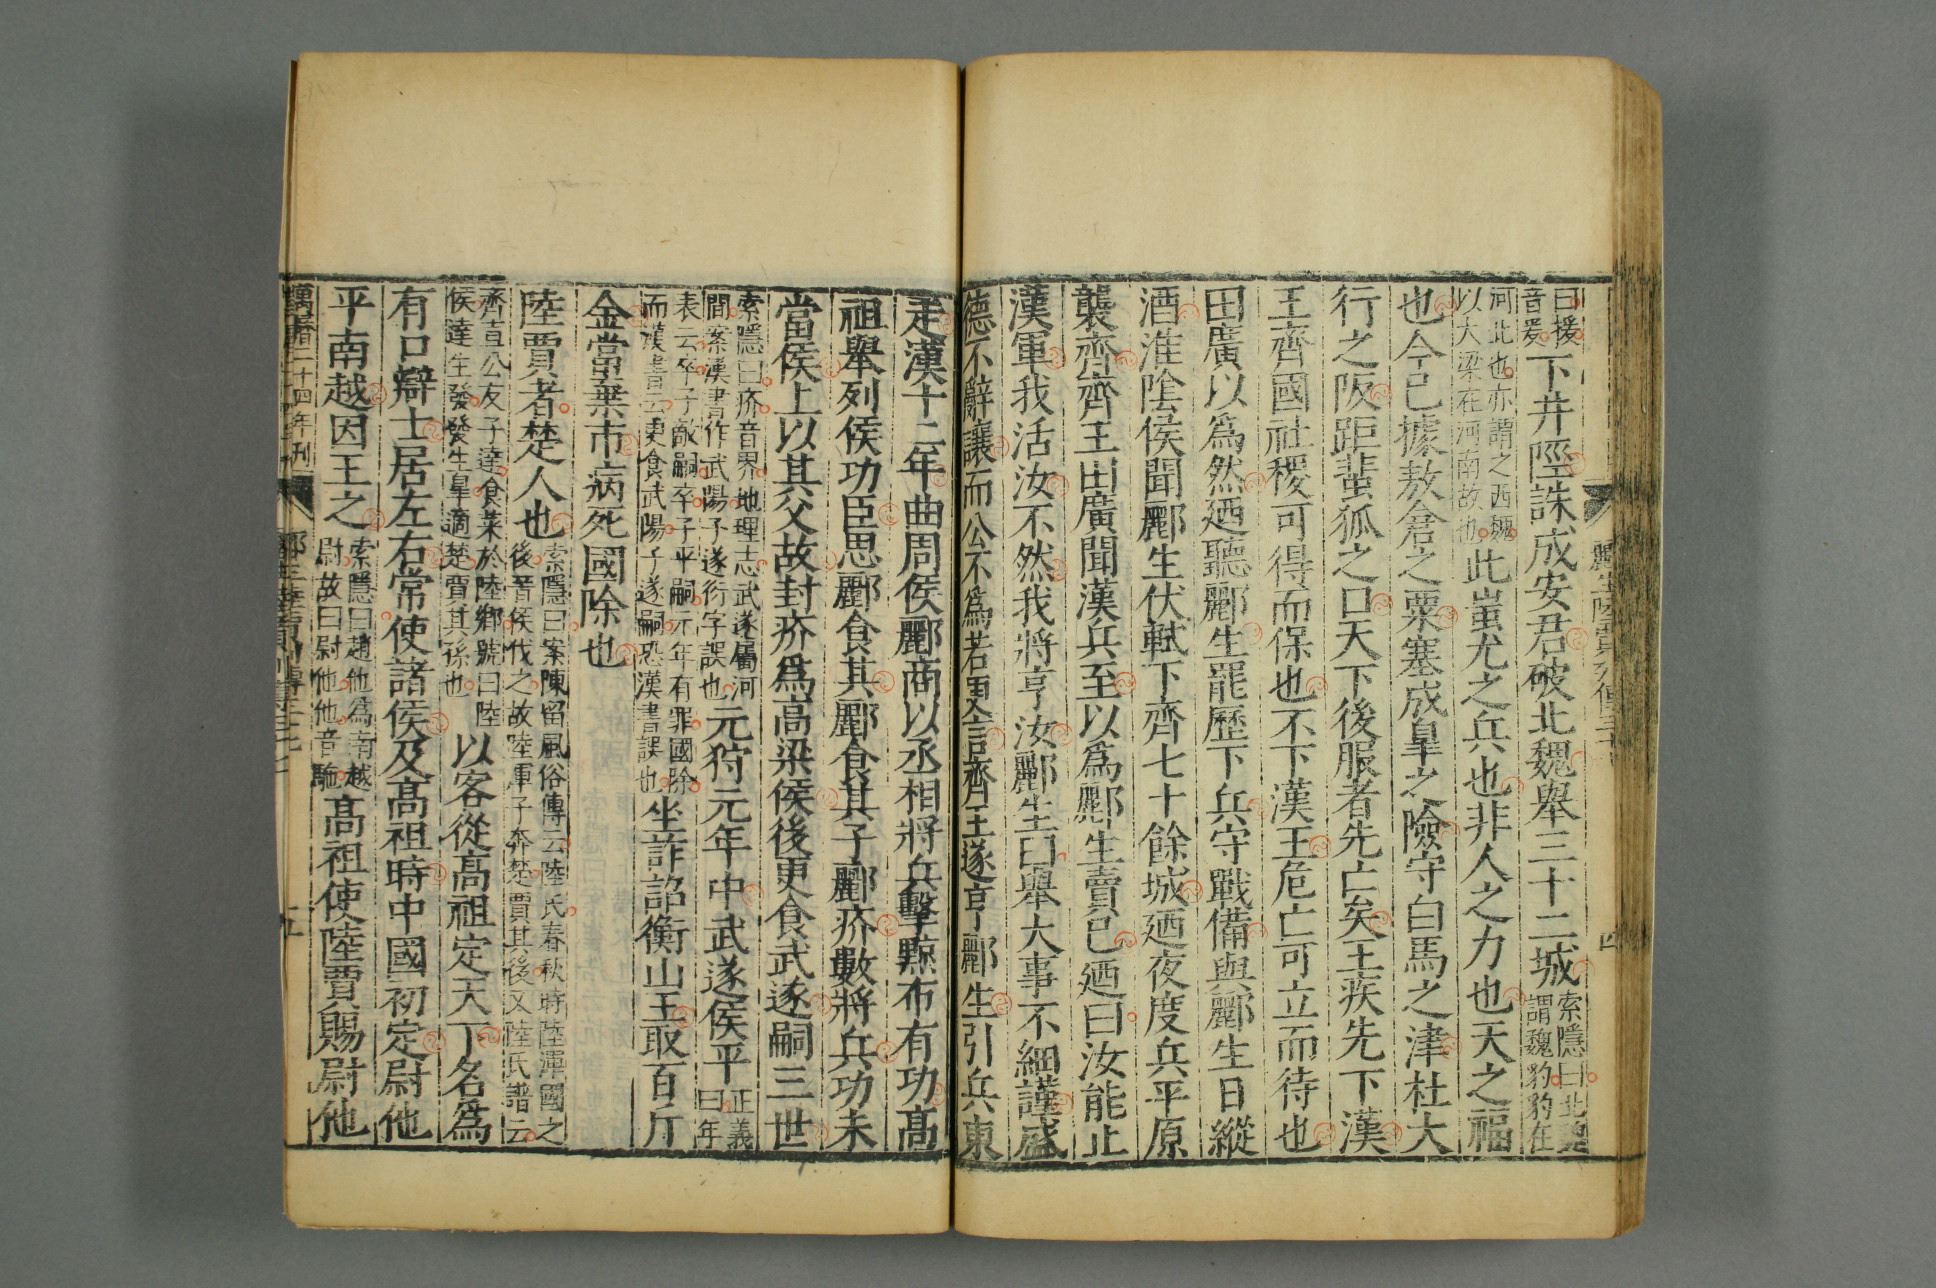 曰援音爰下井陘誅成安君破北魏舉三十二城索隱曰北魏謂魏豹豹在
河北也亦謂之西魏以大梁在河南故也此蚩尤之兵也非人之力也天之福
也今已據敖倉之粟塞成皐之險守白馬之津杜大
行之阪距蜚狐之口天下後服者先亡矣王疾先下漢
王齊國社稷可得而保也不下漢王危亡可立而待也
田廣以爲然廼聽酈生罷歷下兵守戰備與酈生日縱
酒淮陰侯聞酈生伏軾下齊七十餘城廼夜度兵平原
襲齊齊王田廣聞漢兵至以爲酈生賣已廼曰汝能止
漢軍我活汝不然我將亨汝酈生曰舉大事不細謹盛
德不辭讓而公不爲若更言齊王遂亨酈生引兵東
走漢十二年曲周侯酈商以丞相將兵擊黥布有功髙
祖舉列侯功臣思酈食其酈食其子酈疥數將兵功未
當侯上以其父故封疥爲高梁侯後更食武遂嗣三世
索隱曰疥音界地理志武遂屬河間案漢書作武陽子遂衍字誤也元狩元年中武遂侯平正義曰年
表云卒子敵嗣卒子平嗣元年有罪國除而漢書云更食武陽子遂嗣恐漢書誤也坐詐詔衡山王取百斤
金當棄市病死國除也
陸賈者楚人也索隱曰案陳留風俗傳云陸氏春秋時陸渾國之後晉侯伐之故陸渾子奔楚賈其後又陸氏譜云
齊宣公友子達食菜於陸鄉號曰陸侯達生發發生臯適楚賈其孫也以客從高祖定天下名爲
有口辯士居左右常使諸侯及髙祖時中國初定尉他
平南越因王之索隱曰趙他爲南越尉故曰尉他他音駞髙祖使陸賈賜尉他
酈生陸賈列傳三十
四
二十四年刊
酈生陸賈列傳三十七
五